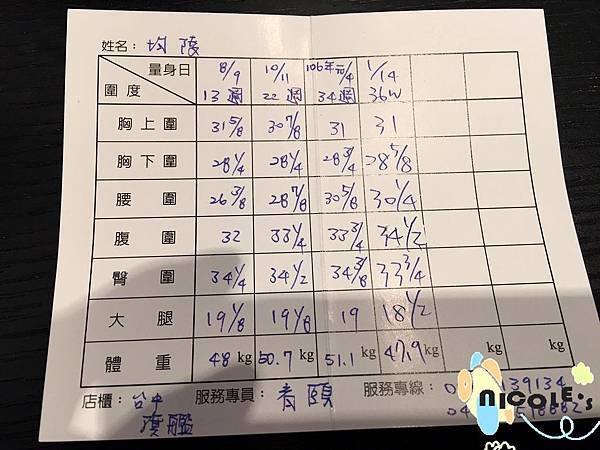 姓名: 均陵
量身日 圍度 8/9 13週 10/11 22週 106年元/4 34週 1/14 36W
胸上圍 31 5/8 30 7/8 31 31
胸下圍 28 1/4 28 1/4 28 3/4 28 5/8
腰圍 26 3/8 28 7/8 30 5/8 30 1/4
腹圍 32 33 1/4 33 3/4 34 1/2
臀圍 34 1/4 34 1/2 34 3/8 33 3/4
大腿 19 1/8 19 1/8 19 18 1/2
體重 48 kg 50.7 kg 51.1 kg 47.9 kg kg kg
店櫃: 台中旗艦 服務專員: 服務專線: 139134
NICOLE's